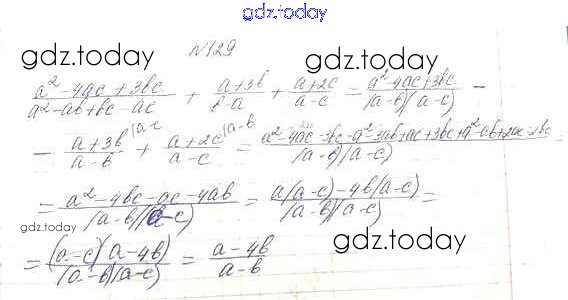 gdz.today
gdz.today
N129
gdz.today
(a² - 4ac + 3bc)/(a² - ab + bc - ac) + (a+3b)/(b-a) + (a+2c)/(a-c) = (a² - 4ac + 3bc)/((a-b)(a-c)) -
- (a+3b)/(a-b) |a-c + (a+2c)/(a-c) |a-b = /((a-b)(a-c))
= (a² - 4bc - ac - 4ab)/((a-b)(a-c)) = (a(a-c) - 4b(a-c))/((a-b)(a-c)) =
gdz.today
gdz.today
= ((a-c)(a-4b))/((a-b)(a-c)) = (a-4b)/(a-b)